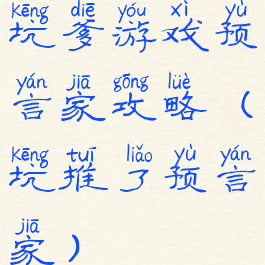 kēng diē yóu xì yù
坑爹游戏预
yán jiā gōng lüè
言家攻略（
kēng tuī liǎo yù yán
坑推了预言
jiā
家）